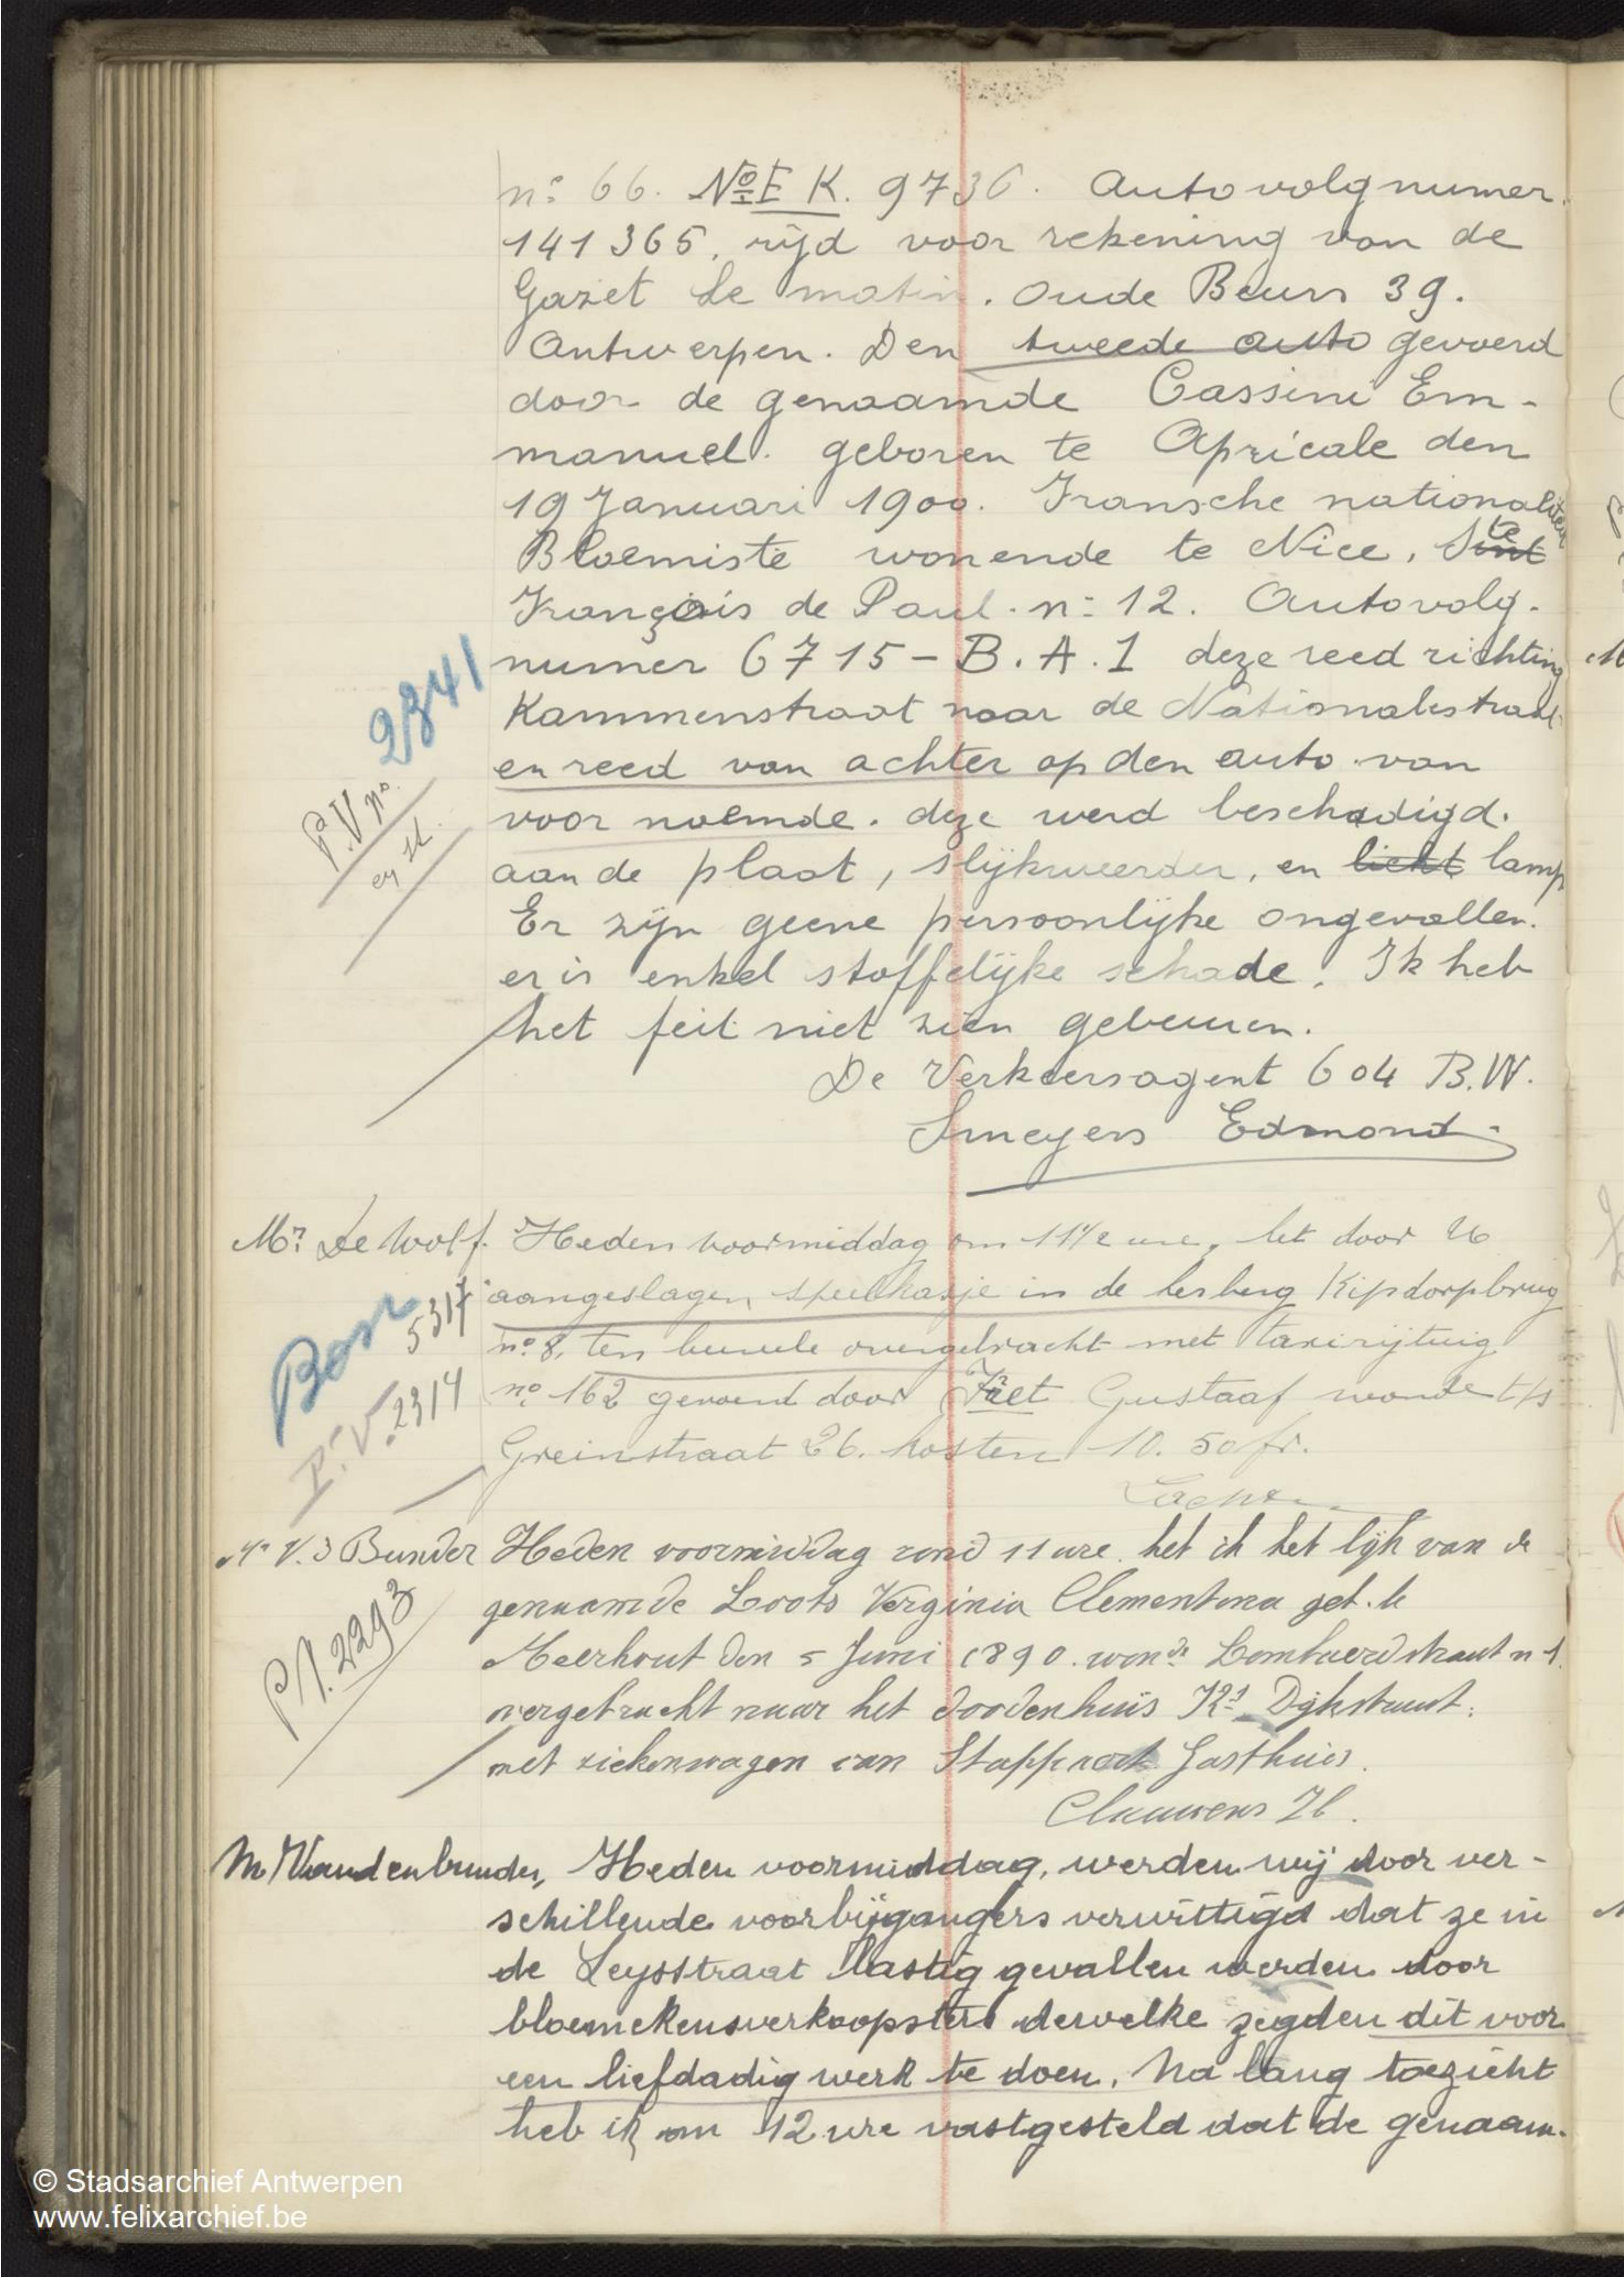 n: 66. No E K. 9736. Autovolgnumer.
141365, rijd voor rekening van de
Gazet Le matin. Oude Beurs 39.
Antwerpen. Den tweede auto gevoerd
door de genaamde Cassini Em-
manuel. geboren te Apricale den
19 Januari 1900. Fransche nationaliteit
Bloemiste wonende te Nice, Sint te
François de Paul. n: 12. Autovolg.
numer 6715-B.A.1 deze reed richting
Kammenstraat naar de Nationalestraat
en reed van achter op den auto van
voor noemde. deze werd beschadigd.
aan de plaat, slijkweerder, en licht lamp
Er zijn geene persoonlijke ongevallen.
er is enkel stoffelijke schade. Ik heb
het feit niet zien gebeuren.
De Verkeersagent 604 B.W.
Smeyers Edmond.
P.V no. 2341
Mr De Wolf. Heden voormiddag om 11 1/2 ure, het door
aangeslagen speelkasje in de herberg Kipdorpbrug
no 8, ten bureele overgebracht met taxirijtuig
no 162 gevoerd door Gustaaf wonde t/s
Greinstraat 26. kosten 10.50 fr.
5317
P.V. 2314
Mr V. d Bunder Heden voormiddag rond 11 ure. heb ik het lijk van de
genaamde Loots Verginia Clementina geb. te
Meerhout den 5 Juni 1890. wonde Lombaerdstraat n 1.
overgebracht naar het doodenhuis Kte Dijkstraat.
met ziekenwagen van Gasthuis.
Clauwens H.
P.V. 2293
Mr Vandenbunder, Heden voormiddag, werden wij door ver-
schillende voorbijgangers verwittigd dat ze in
de Leysstraat lastig gevallen werden door
bloemekensverkoopsters dervelke zegden dit voor
een liefdadig werk te doen. Na lang toezicht
heb ik om 12 ure vastgesteld dat de genaam-
© Stadsarchief Antwerpen
www.felixarchief.be